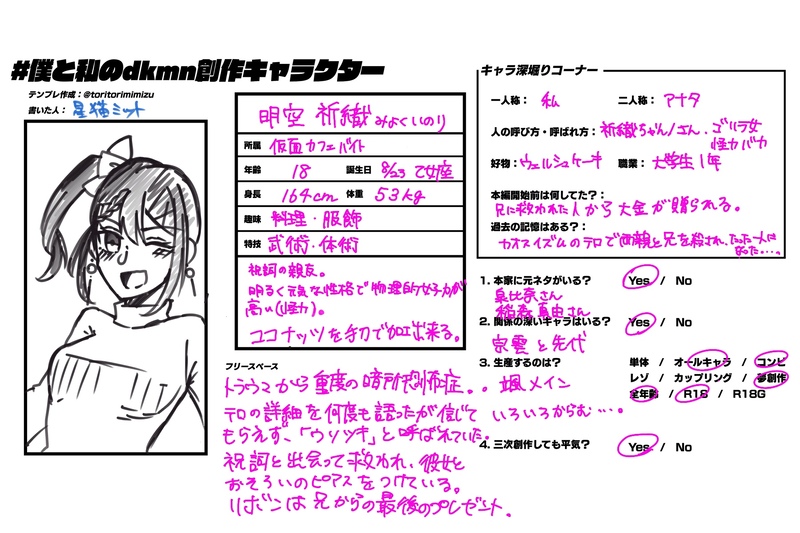 #僕と私のdkmn創作キャラクター
テンプレ作成：@toritorimimizu
書いた人：星猫ミント
明空 祈織 みよくいのり
所属 仮面カフェバイト
年齢 18 誕生日 8/23 乙女座
身長 164cm 体重 53kg
趣味 料理・服飾
特技 武術・体術
祝詞の親友。
明るく元気な性格で物理的女子力が
高い(怪力)。
ココナッツを手刀で加工出来る。
フリースペース
トラウマから重度の暗所恐怖症。
テロの詳細を何度も語ったが信じて
もらえず、「ウソツキ」と呼ばれていた。
祝詞と出会って救われ、彼女と
おそろいのピアスをつけている。
リボンは兄からの最後のプレゼント。
キャラ深堀りコーナー
一人称： 私 二人称： アナタ
人の呼び方・呼ばれ方：祈織ちゃん/さん、ゴリラ女
怪力バカ
好物：ウェルシュケーキ 職業：大学生1年
本編開始前は何してた？：
兄に救われた人から大金が贈られる。
過去の記憶はある？：
カオスイズムのテロで両親と兄を殺され、たった一人に
なった…。
1. 本家に元ネタがいる？ Yes / No
皐比奈さん
稲森真由さん
2. 関係の深いキャラはいる？ Yes / No
宗雲と先代
3. 生産するのは？ 単体 / オールキャラ / コンビ
颯メイン レゾ / カップリング / 夢創作
いろいろからむ…。 全年齢 / R18 / R18G
4. 三次創作しても平気？ Yes / No